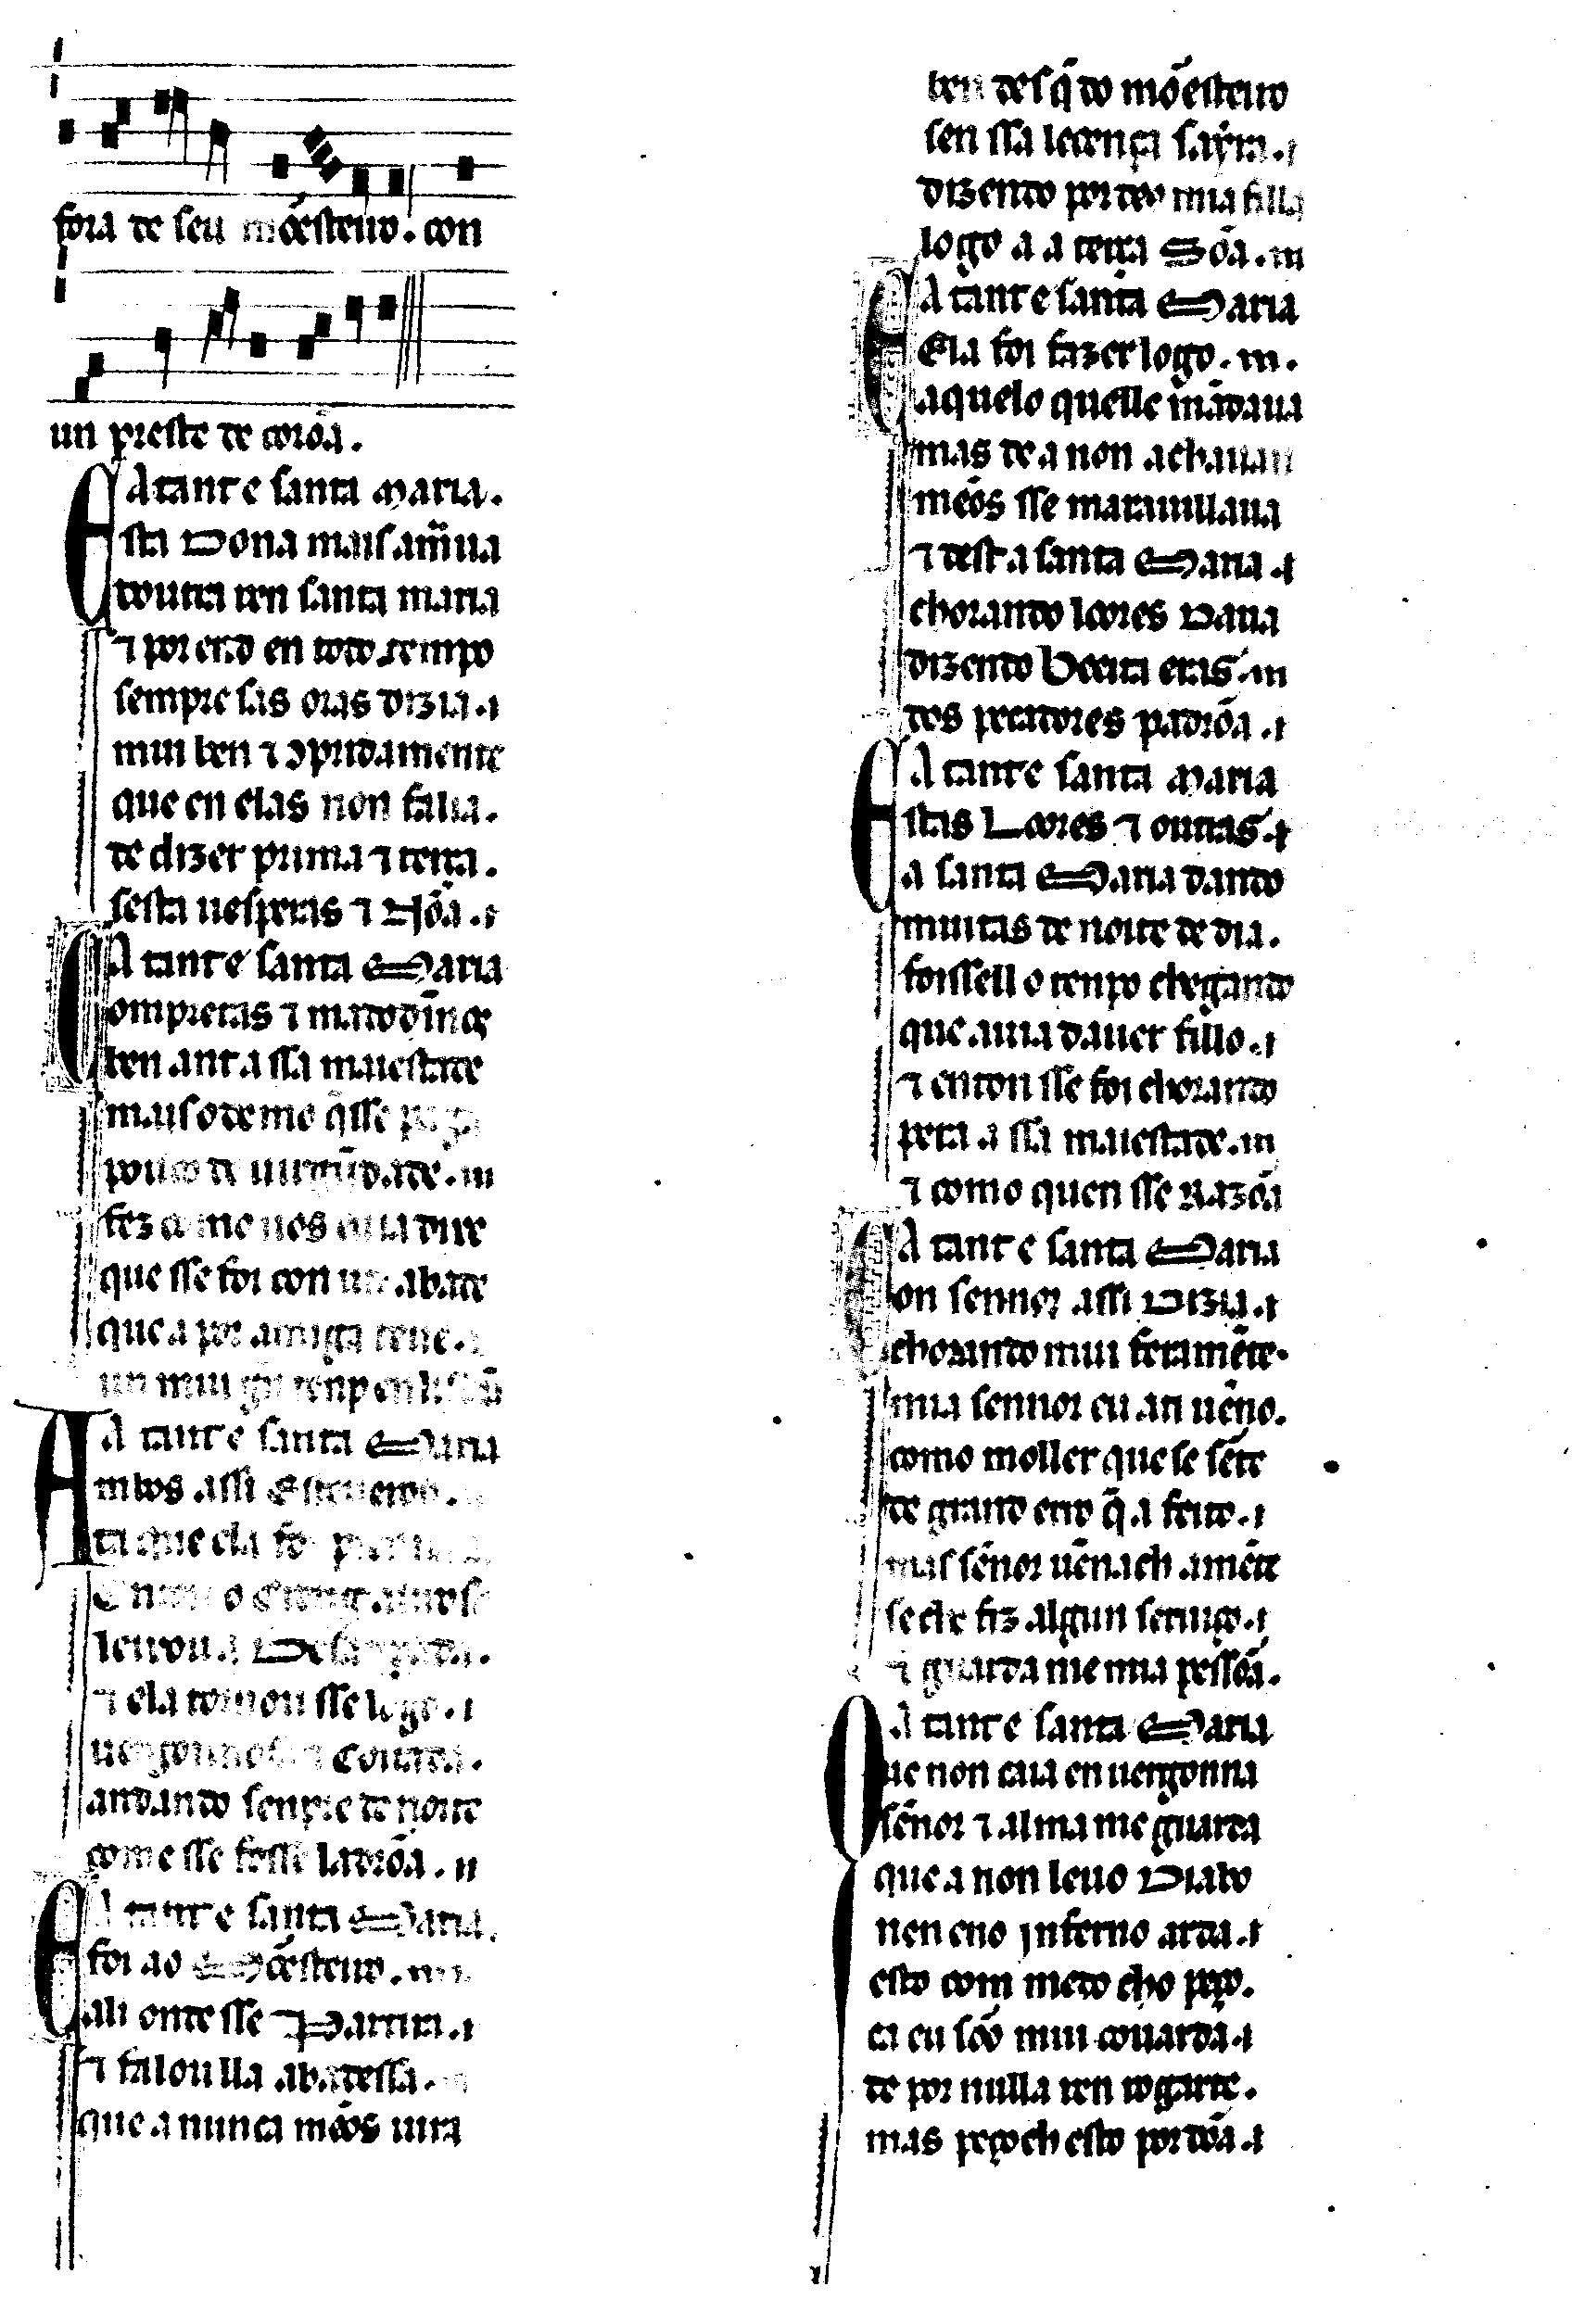 fora de seu mõesteiro. con
un preste de corõa.
A tant é santa Maria.
sta Dona mais amaua
doutra ren santa maria
⁊ por end en todo tempo
sempre sas oras dizia.
mui ben ⁊ ꝯpridamente
que en elas non falia.
de dizer prima ⁊ terça.
sesta uesperas ⁊ Nõa.
A tant é santa Maria
ompretas ⁊ madodĩnos
ben ant a ssa maiestade
mais o demo q̃ sse paga
pouco de uirgĩidade.
fez como uos eu direi
que sse foi con un abade
que a por amiga teue.
un mui gran tenp en
A tant é santa Maria
mbos assi Esteueron.
ta que ela foi
Enton o
leixou a Desanparada.
⁊ ela tornou sse logo.
uergonnosa ⁊ Coitada.
andando senpre de noite
come sse fosse ladrõa.
A tant é santa Maria.
foi ao Mõesteiro.
ali onde sse Partira.
⁊ falou lla abadessa.
que a nunca mẽos uira
ben des q̃ do mõesteiro
sen ssa lecença saýra.
dizendo por deo mia filla
logo a a terça Sõa.
A tant é santa Maria
Ela foi fazer logo.
aquelo quelle mãdaua
mas de a non achauan
mẽos sse marauillaua
⁊ dest a santa Maria.
chorando loores Daua
dizendo Beeita eras.
dos pecadores padrõa.
A tant é santa Maria
stas Loores ⁊ outras.
a santa Maria dando
muitas de noite de dia.
foissell o tenpo chegando
que auia dauer fillo.
⁊ enton sse foi chorando
pera a ssa maiestade.
⁊ como quen sse Razõa
A tant é santa Maria
on sennor assi Dizia.
chorando mui feramẽte.
mia sennor eu a ti uẽno.
como moller que se sẽte
de grand erro q̃ a feito.
mas sẽnor uẽnach a mẽte
se che fiz algun seruiço.
⁊ guarda me mia pessõa.
A tant é santa Maria
ue non caia en uergonna
sẽnor ⁊ alma me guarda
que a non leuo Diabo
nen eno jnferno arda.
esto com medo cho peço.
ca eu sõo mui couarda.
de por nulla ren rogarte.
mas peçoch esto por dõa.